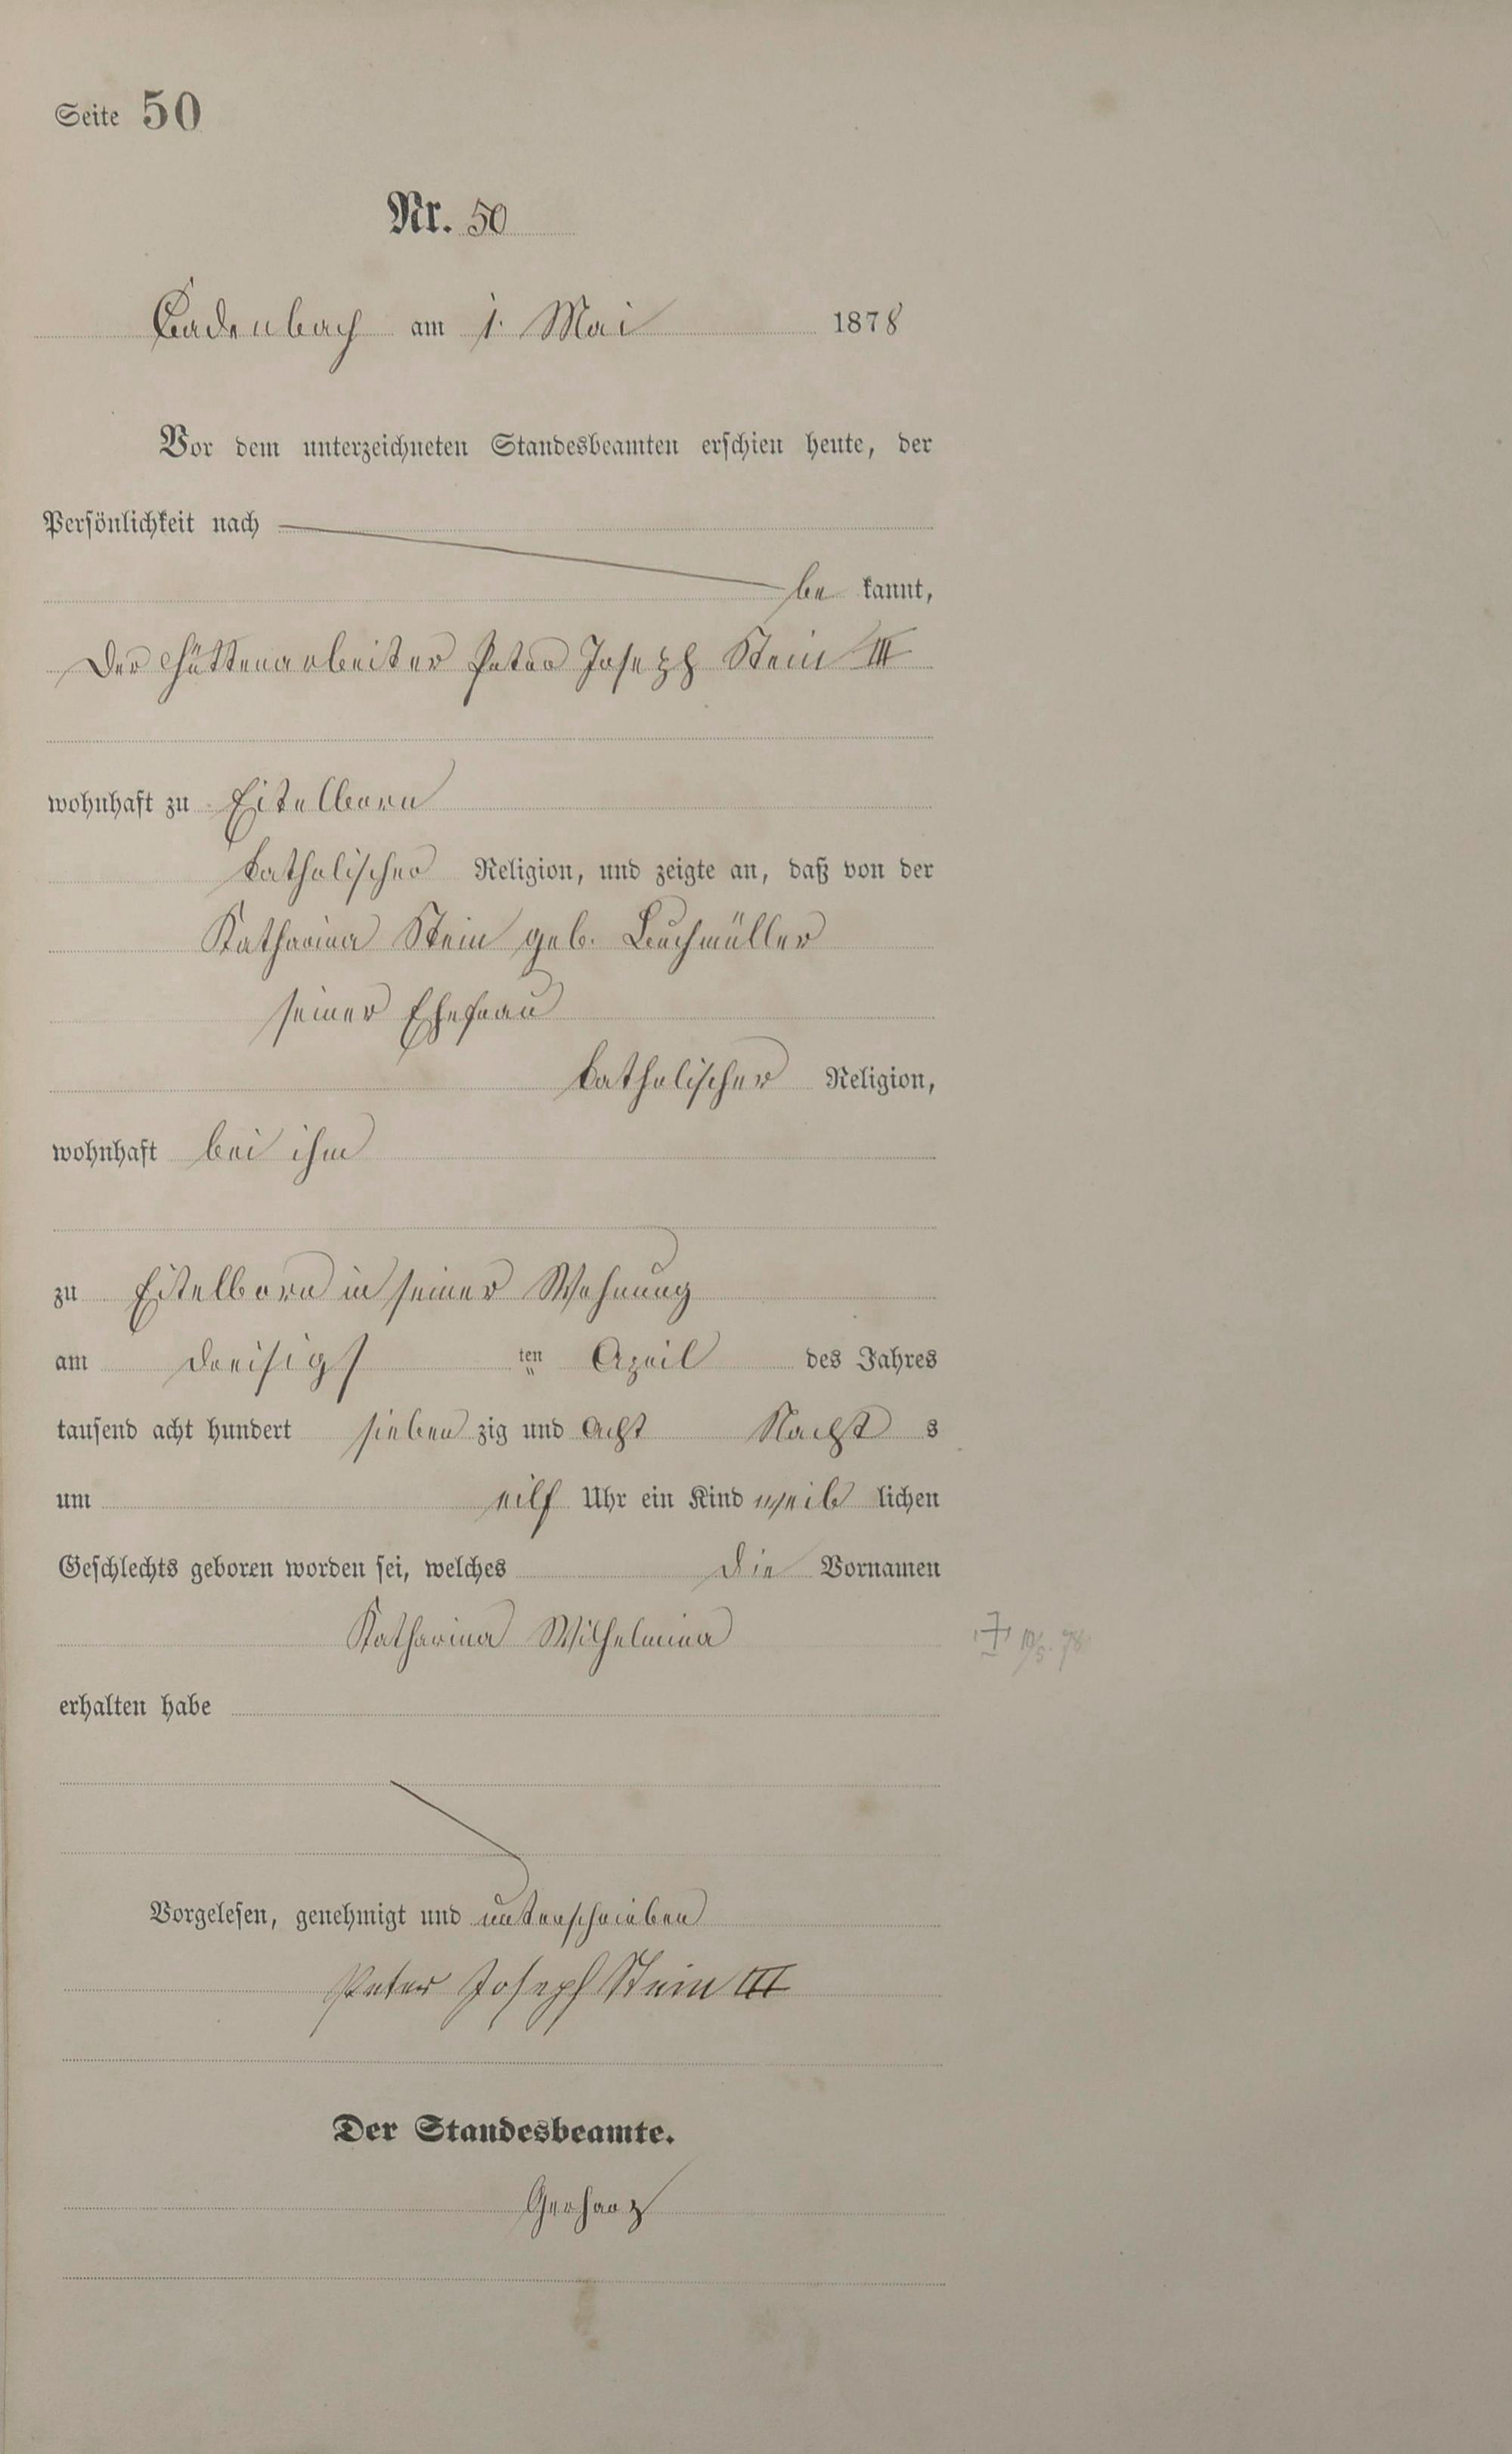 Seite 50
Nr. 50
Cadenbach am 1. Mai 1878
Vor dem unterzeichneten Standesbeamten erschien heute, der
Persönlichkeit nach
be kannt,
Der Hüttenarbeiter Peter Joseph Stein III
wohnhaft zu Eitelborn
katholischer Religion, und zeigte an, daß von der
Katharina Stein geb. Buchmüller
seiner Ehefrau
katholischer Religion,
wohnhaft bei ihm
zu Eitelborn in seiner Wohnung
am dreisigs ten April des Jahres
tausend acht hundert sieben zig und acht Nacht s
um eilf Uhr ein Kind weib lichen
Geschlechts geboren worden sei, welches die Vornamen
Katharina Wilhelmina
† 10/5. 78
erhalten habe
Vorgelesen, genehmigt und unterschrieben
Peter Joseph Stein III
Der Standesbeamte.
Gerharz